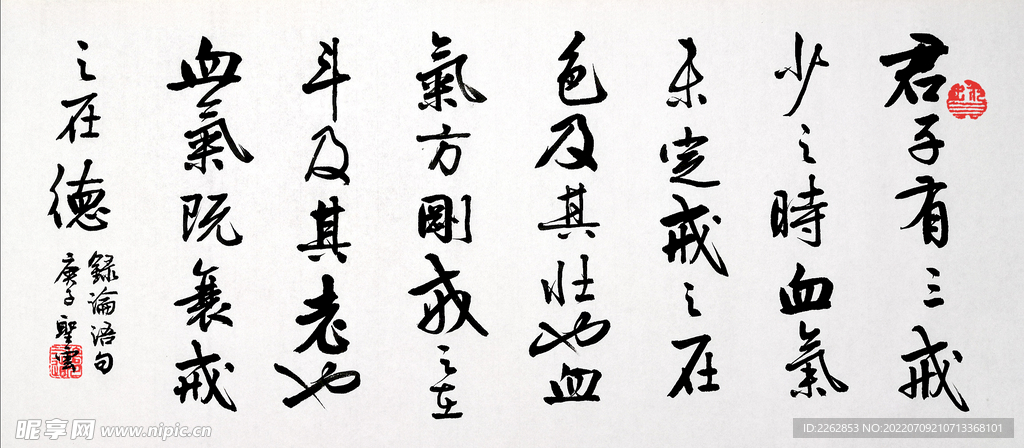 君子有三戒
少之時血氣
未定戒之在
色及其壯也血
氣方剛戒之在
斗及其老也
血氣既衰戒
之在德
錄論語句
庚子聖雲
昵享网 www.nipic.cn
ID:2262853 NO:20220709210713368101